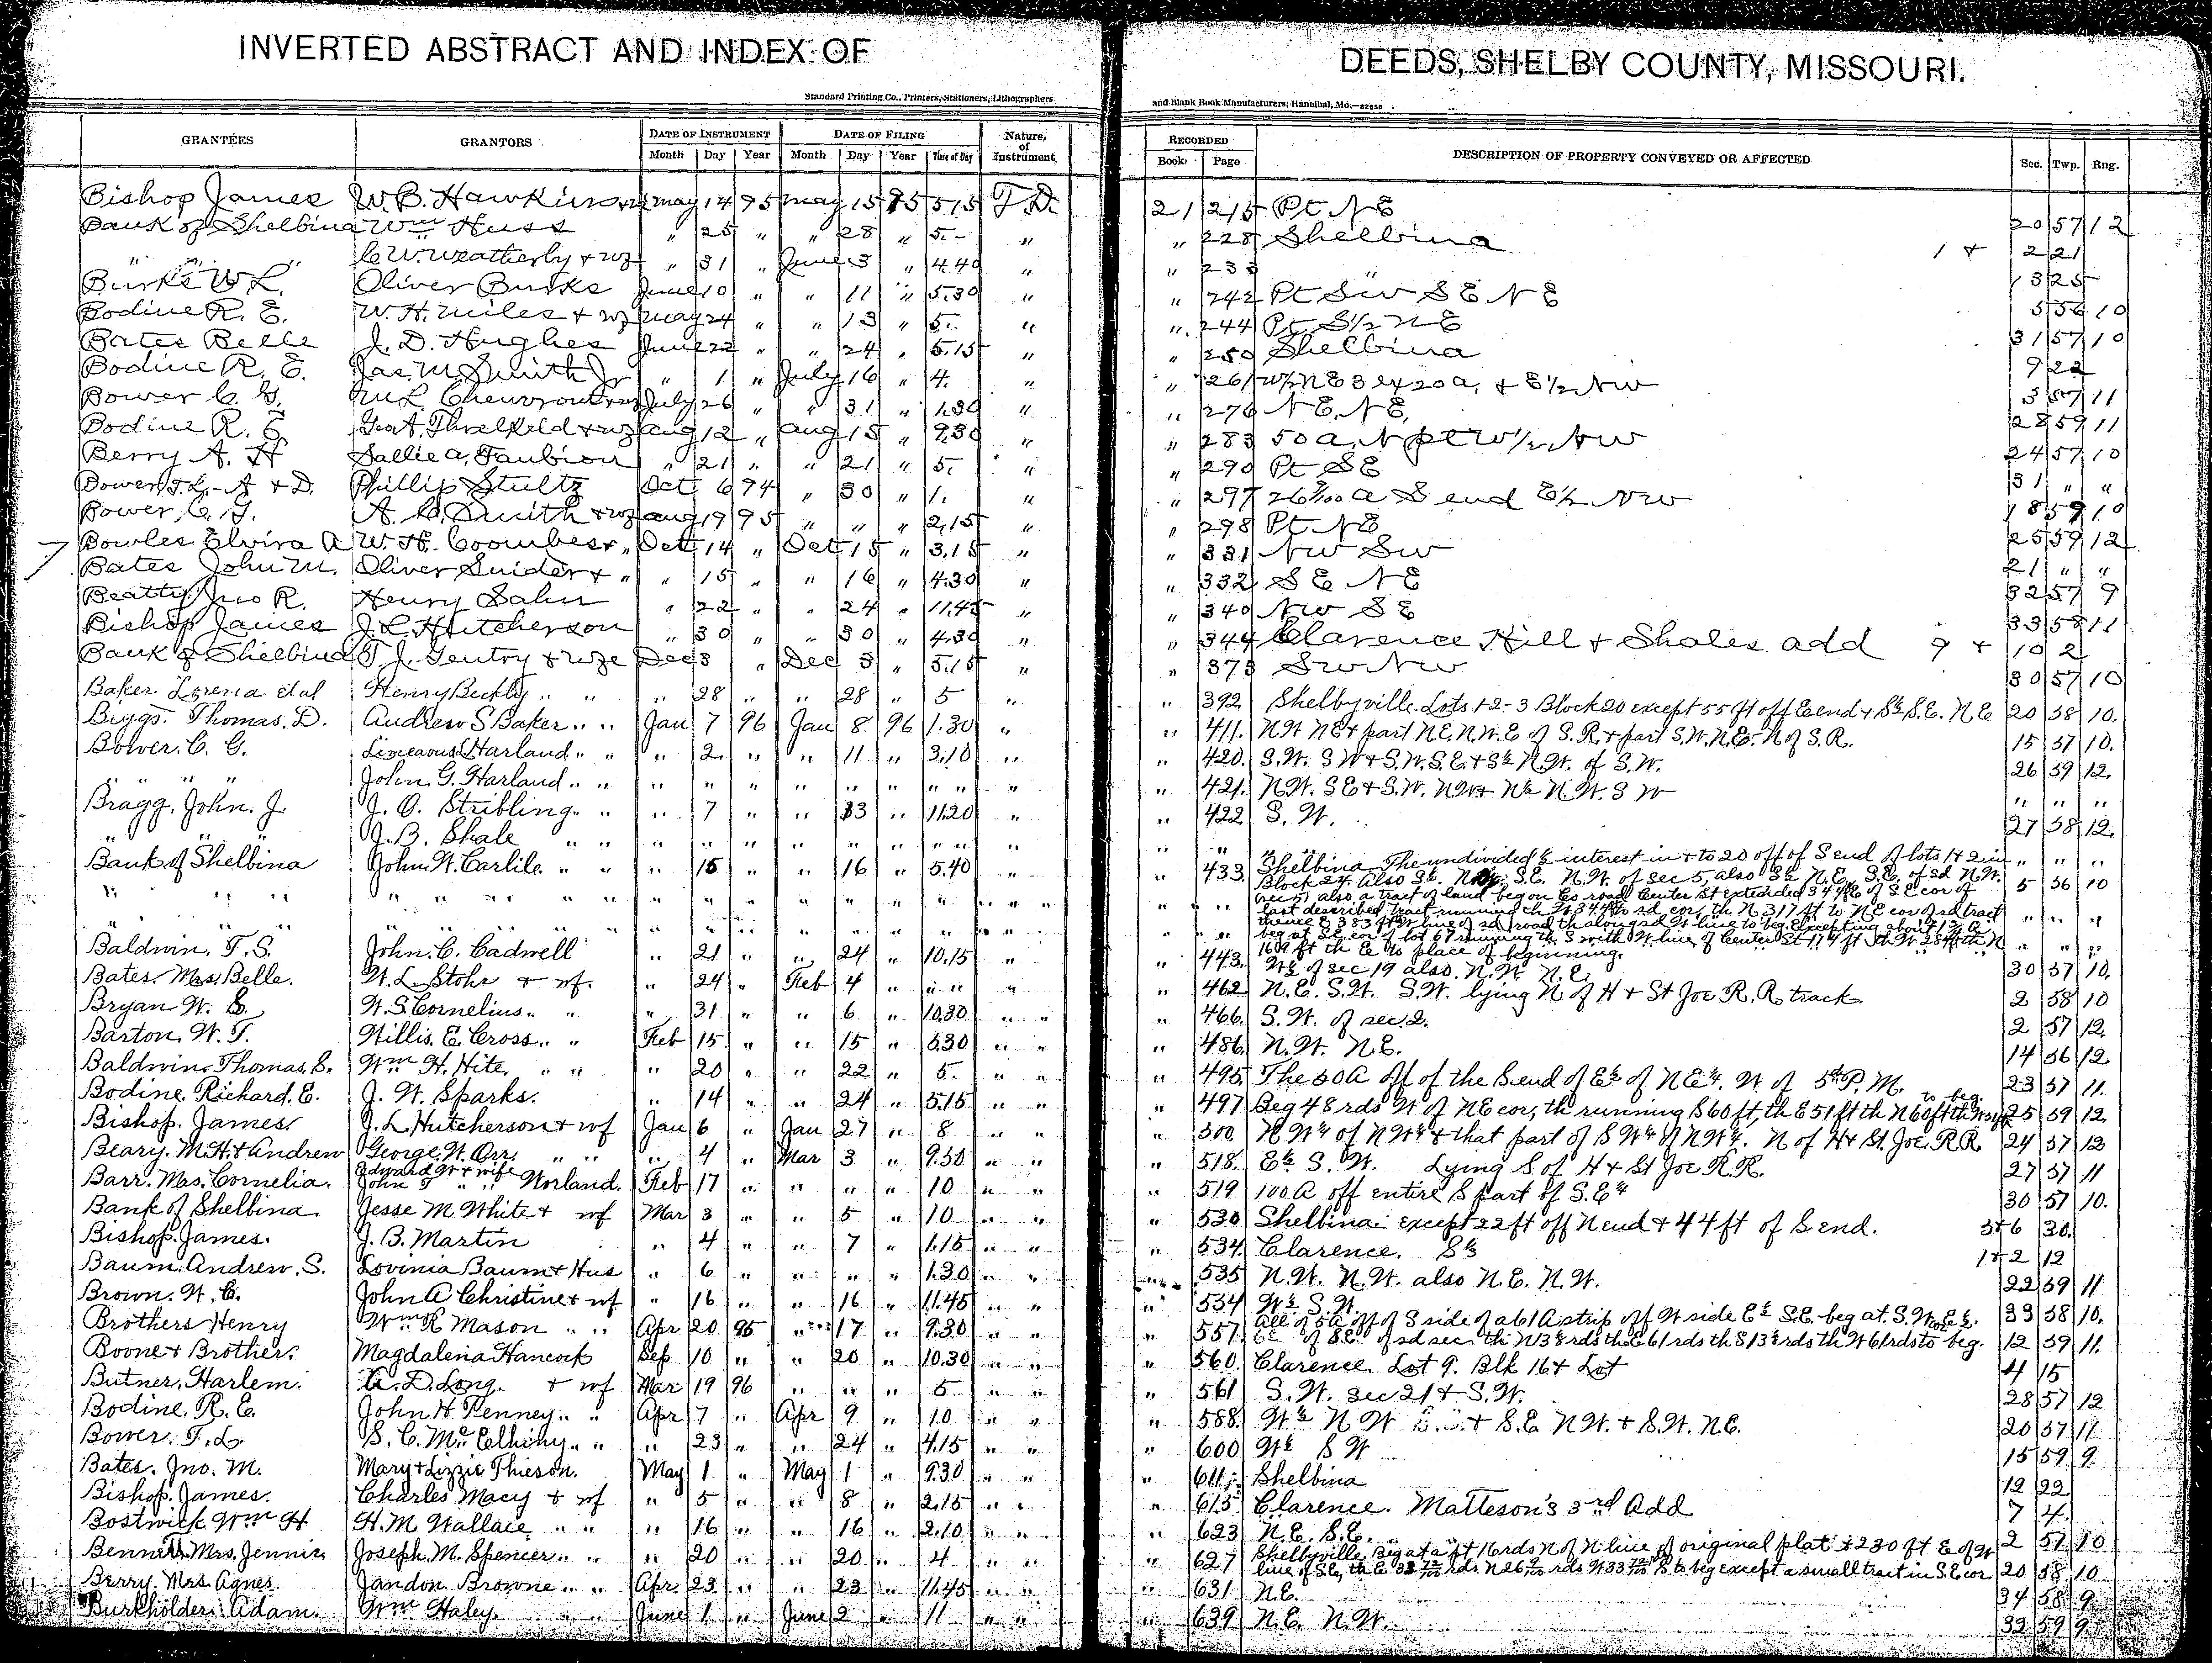 INVERTED ABSTRACT AND INDEX OF DEEDS, SHELBY COUNTY, MISSOURI.
Standard Printing Co., Printers, Stationers, Lithographers and Blank Book Manufacturers, Hannibal, Mo.
GRANTEES GRANTORS DATE OF INSTRUMENT DATE OF FILING Nature of Instrument RECORDED DESCRIPTION OF PROPERTY CONVEYED OR AFFECTED Sec. Twp. Rng.
Month Day Year Month Day Year Time of Day Book Page
Bishop James W. B. Hawkins May 14 95 May 15 95 5.15 T.D. 21 215 Pt NE 20 57 12
Bank of Shelbina Wm Huss " 25 " " 28 " 5.- " " 228 Shelbina 1 + 2 21
" " " C. W. Weatherby + wf " 31 " June 3 " 4.40 " " 233 " 13 25
Burks W L. Oliver Burks June 10 " " 11 " 5.30 " " 242 Pt SW SE NE 5 56 10
Bodine R. E. W. H. Miles + wf May 24 " " 13 " 5. " " 244 Pt S½ NE 31 57 10
Bates Belle J. D. Hughes June 22 " " 24 " 5.15 " " 250 Shelbina 9 22
Bodine R. E. Jas. M. Smith Jr " 1 " July 16 " 4. " " 261 W½ NE 3 ex 20 a, + E½ NW 3 57 11
Bower C. G. July 26 " " 31 " 1.30 " " 276 NE, NE, 28 59 11
Bodine R. E Geo A. Threlkeld + wf Aug 12 " Aug 15 " 9.30 " " 283 50 a. N pt W½ NW 24 57 10
Berry A. H Sallie A. Faubion " 21 " " 21 " 5. " " 290 Pt SE 31 " "
Bower T. L. - A + D. Phillip Stultz Oct 6 94 " 30 " 1. " " 297 a S end E½ NW 18 59 10
Bower, C. G. A. C. Smith + wf Aug 19 95 " " " 2.15 " " 298 Pt NE 25 59 12
Bowles Elvira A W. H. Coombes + " Oct 14 " Oct 15 " 3.15 " " 331 NW SW 21 " "
Bates John M. Oliver Snider + " " 15 " " 16 " 4.30 " " 332 SE NE 32 57 9
Beatty Jno R. Henry Sahn " 22 " " 24 " 11.45 " " 340 NW SE 33 58 11
Bishop James J. L. Hutcherson " 30 " " 30 " 4.30 " " 344 Clarence Hill + Shales add 9 + 10 2
Bank of Shelbina T. J. Gentry + wfe Dec 3 " Dec 3 " 5.15 " " 373 SW NW 30 57 10
Baker Lorena et al Henry " " " 28 " " 28 " 5 " " 392 Shelbyville. Lots 1-2-3 Block 20 except 55 ft off E end + S½ S.E. N.E 20 58 10.
Biggs. Thomas. D. Andrew S Baker " " Jan 7 96 Jan 8 96 1.30 " " 411. NW NE + part NE. N.W.E of S.R + part S.W. N.E. N of S.R. 15 57 10.
Bower. C. G. Harland " " " 2 " " 11 " 3.10 " " 420. S.W. S W + S.W. S.E. + S½ N.W. of S.W. 26 59 12.
" " " John. G. Harland " " " " " " " " " " " 421. N.W. S E + S.W. N.W. + N½ N.W. S W " " "
Bragg. John. J. J. O. Stribling " " " 7 " " 13 " 11.20 " " 422 S. W. 27 58 12.
" " " J. B. Shale " " " " " " " " " " " " " " " " "
Bank of Shelbina John. W. Carlile " " " 15 " " 16 " 5.40 " " 433. Shelbina The undivided ½ interest in + to 20 off of S end of lots 1 + 2 in
Block 24. Also S½ S.E. N.W. of sec 5, also S½ N.E. S.E. of sd N.W. 5 56 10
" " " " " " also a tract of land beg on Co road Center St extended 344 ft E of S E cor of
last described tract running th W 344 ft to sd cor, th N 317 ft to NE cor of sd tract " " "
" " " thence E 383 ft to W line of sd road th along sd W line to beg. Excepting about 1½ A
beg at S.E. cor of lot 67 running th S with W line of Center St 174 ft th W 284 ft th N
169 ft th E to place of beginning.
Baldwin. T. S. John. C. Cadwell " 21 " " 24 " 10.15 " " 443. W½ of sec 19 also. N.W. N.E. 30 57 10.
Bates. Mrs. Belle. W. L. Stohr + wf. " 24 " Feb 4 " " " " 462 N.E. S.W. S.W. lying N of H + St Joe R. R. track 2 58 10
Bryan W. S. W. S. Cornelius " " " 31 " " 6 " 10.30 " " 466. S.W. of sec 2. 2 57 12.
Barton. W. T. Willis. E. Cross " " Feb 15 " " 15 " 6.30 " " 486. N.W. N.E. 14 56 12.
Baldwin. Thomas. S. Wm H. Hite. " " " 20 " " 22 " 5. " " 495. The 50 A off of the S end of E½ of N E¼. W. of 5th P. M. 23 57 11.
Bodine. Richard. E. J. W. Sparks. " 14 " " 24 " 5.15 " " 497 Beg 48 rds W of NE cor, th running S 60 ft, th E 51 ft th N 60 ft th W 51 ft to beg. 25 59 12.
Bishop. James. J. L Hutcherson + wf Jan 6 " Jan 27 " 8 " " 500. N W¼ of N W¼ + that part of S W¼ of N W¼. N of H + St. Joe. R.R. 24 57 12
Beary. M. H + Andrew George. W. Orr. " " " 4 " Mar 3 " 9.30 " " 518. E½ S. W. Lying S of H + St Joe R.R. 27 57 11
Barr. Mrs. Cornelia. Edward W + wife John T " " Worland. Feb 17 " " " " 10 " " 519 100 A off entire S part of S.E¼ 30 57 10.
Bank of Shelbina Jesse M White + wf Mar 3 " " 5 " 10 " " 530 Shelbina except 22 ft off N end + 44 ft of S end. 5+6 30.
Bishop. James. J. B. Martin " 4 " " 7 " 1.15 " " 534. Clarence. S½ 1+2 12
Baum. Andrew. S. Lovinia Baum + Hus " 6 " " " " 1.30 " " 535 N.W. N.W. also N.E. N.W. 22 59 11
Brown. W. C. John A Christine + wf " 16 " " 16 " 11.45 " " 534 W½ S.W. 33 58 10.
Brothers Henry Wm R Mason " " Apr 20 95 " 17 " 9.30 " " 557. All of 5 A off of S side of a 61 A strip off W side E½ S.E. beg at S.W cor E½
of S.E. of sd sec th N 13½ rds th E 61 rds th S 13½ rds th W 61 rds to beg. 12 59 11.
Boone + Brother. Magdalena Hancock Sep 10 " " 20 " 10.30 " " 560. Clarence Lot 9. Blk 16 + Lot 4 15
Butner, Harlem. D. Long. + wf Mar 19 96 " " " 5 " " 561 S.W. sec 21 + S.W. 28 57 12
Bodine. R. E. John H Penney " " Apr 7 " Apr 9 " 10 " " 588. W½ N W + S.E N W. + S.W. N.E. 20 57 11
Bower. T. L S. C. McElhiny " " " 23 " " 24 " 4.15 " " 600 W½ S W 15 59 9
Bates. Jno. M. Mary + Lizzie Thieson. May 1 " May 1 " 9.30 " " 611 Shelbina 12 22
Bishop. James. Charles Macy + wf " 5 " " 8 " 2.15 " " 615 Clarence. Matteson's 3rd Add 7 4
Bostwick Wm H H. M Wallace " " " 16 " " 16 " 2.10 " " 623 N.E. S.E. 2 57 10
Bennett Mrs. Jennie Joseph. M. Spencer " " " 20 " " 20 " 4 " " 627 Shelbyville. Beg at a pt 16 rds N of N line of original plat + 230 ft E of W
line of S.E, th E rds N rds W S to beg except a small tract in S.E cor. 20 58 10
Berry. Mrs. Agnes. Landon Browne " " Apr 23 " " 23 " 11.45 " " 631 N.E. 34 58 9
Burkholder. Adam. Wm Haley. June 1 " June 2 " 11 " " 639 N.E. N.W. 32 59 9